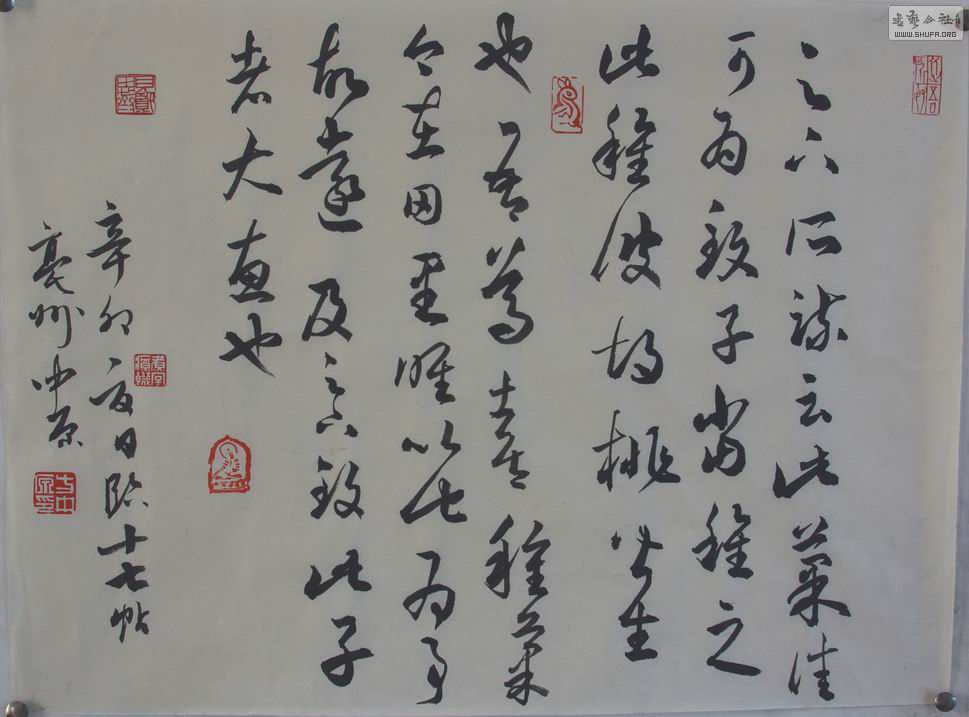 足下所疏云此菓佳
可為致子當種之
此種彼胡桃皆生
也吾篤喜種菓
今在田里唯以此為事
故遠及足下致此子
者大惠也
辛卯夏日臨十七帖
亳州中原
书艺公社
WWW.SHUFA.ORG